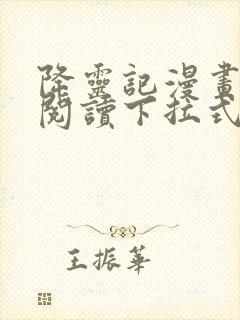 降靈記漫畫
閱讀下拉式
王振華